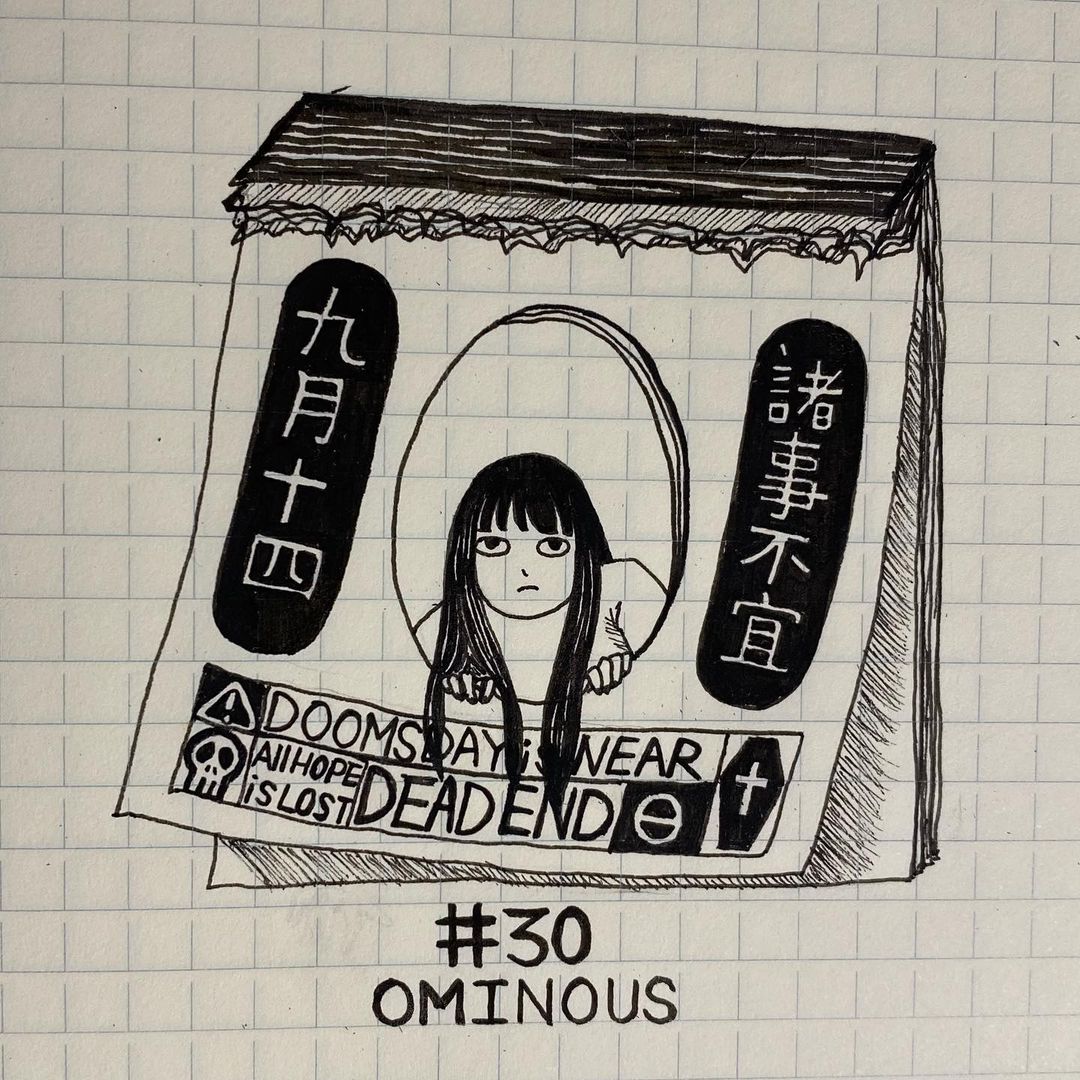 九月十四
諸事不宜
DOOMSDAY is NEAR
All HOPE
is LOST
DEAD END
#30
OMINOUS